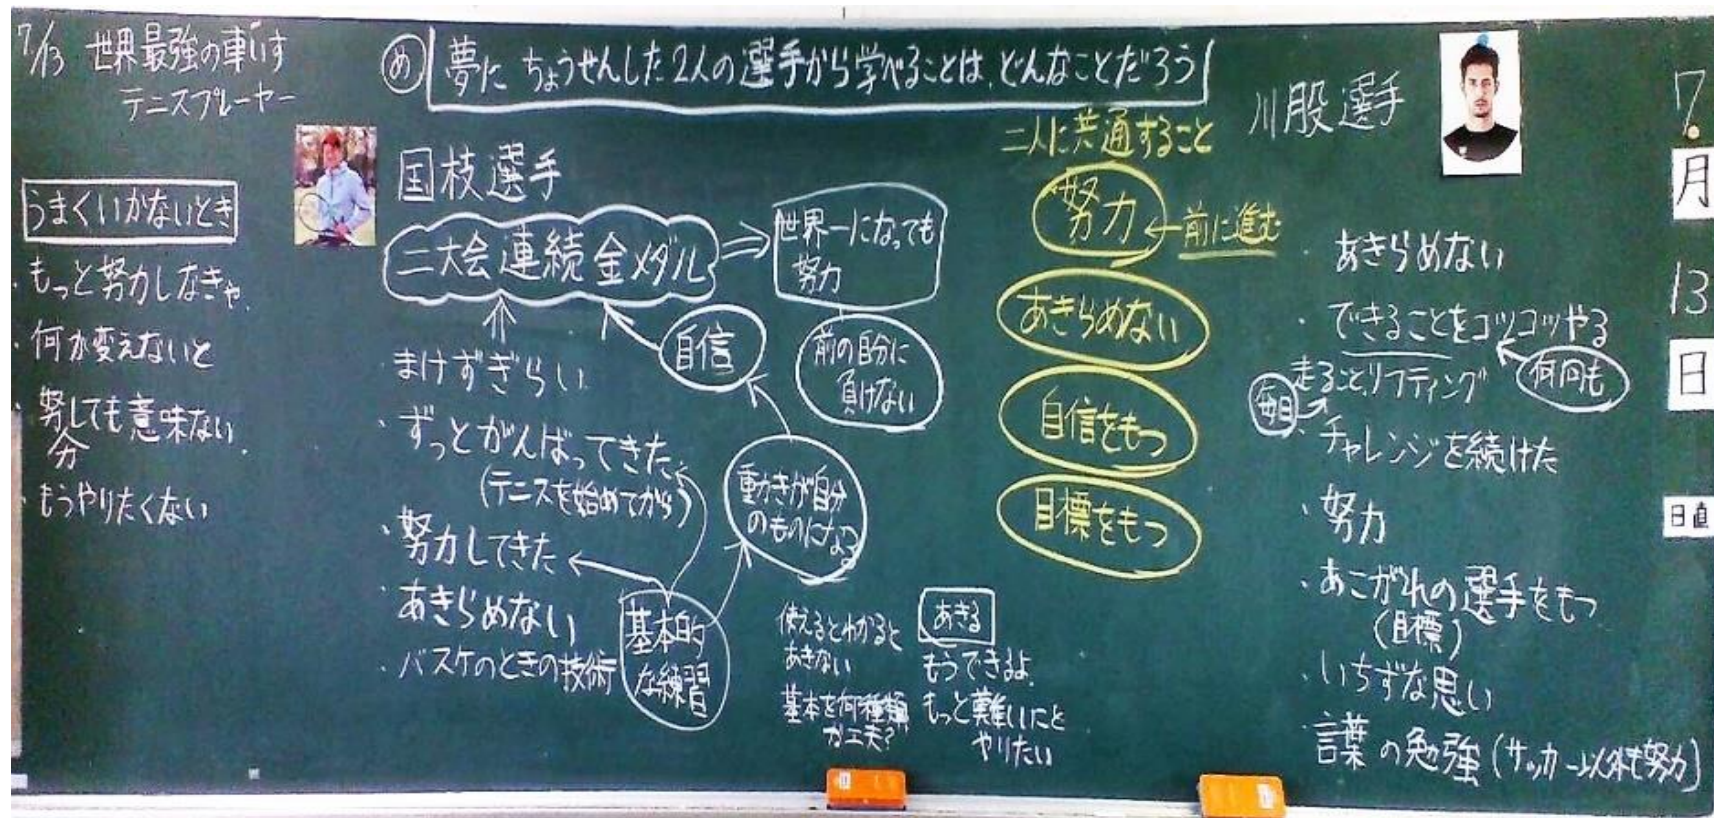 7/13 世界最強の車いす
テニスプレーヤー
うまくいかないとき
・もっと努力しなきゃ
・何か変えないと
・努しても意味ない
分
・もうやりたくない
め 夢に ちょうせんした2人の選手から学べることは、どんなことだろう
国枝選手
二大会連続金メダル
世界一になっても
努力
自信
前の自分に
負けない
・まけずぎらい
・ずっとがんばってきた
(テニスを始めてから)
・努力してきた
・あきらめない
・バスケのときの技術
基本的
な練習
動きが自分
のものになる
使えるとわかると
あきない
基本を何種類
か工夫?
あきる
もうできるよ
もっと難しいこと
やりたい
二人に共通すること
努力
前に進む
あきらめない
自信をもつ
目標をもつ
川股選手
・あきらめない
・できることをコツコツやる
走ること、リフティング
何回も
毎日
・チャレンジを続けた
・努力
・あこがれの選手をもつ
(目標)
・いちずな思い
・言葉の勉強(サッカー以外も努力)
7
月
13
日
日直